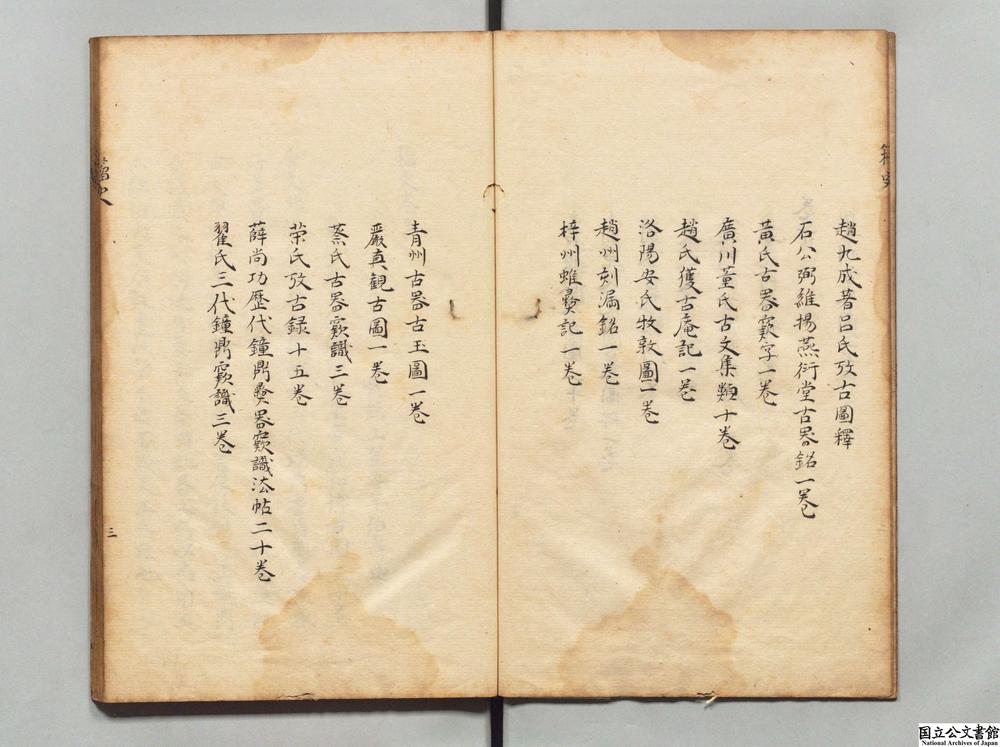 趙九成著呂氏攷古圖釋
石公弼維揚燕衎堂古器銘一卷
黃氏古器窾字一卷
廣川董氏古文集類十卷
趙氏獲古庵記一卷
洛陽安氏牧敦圖一卷
趙州刻漏銘一卷
梓州蜼彜記一卷
青州古器古玉圖一卷
嚴真觀古圖一卷
蔡氏古器窾識三卷
榮氏攷古録十五卷
薛尚功歷代鐘鼎彜器窾識法帖二十卷
翟氏三代鐘鼎窾識三卷
籀史
三
国立公文書館
National Archives of Japan